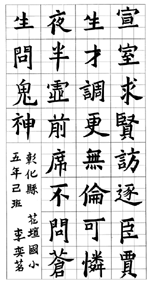 宣室求賢訪逐臣賈
生才調更無倫可憐
夜半虛前席不問蒼
生問鬼神
彰化縣 花壇國小
五年己班 李奕茗